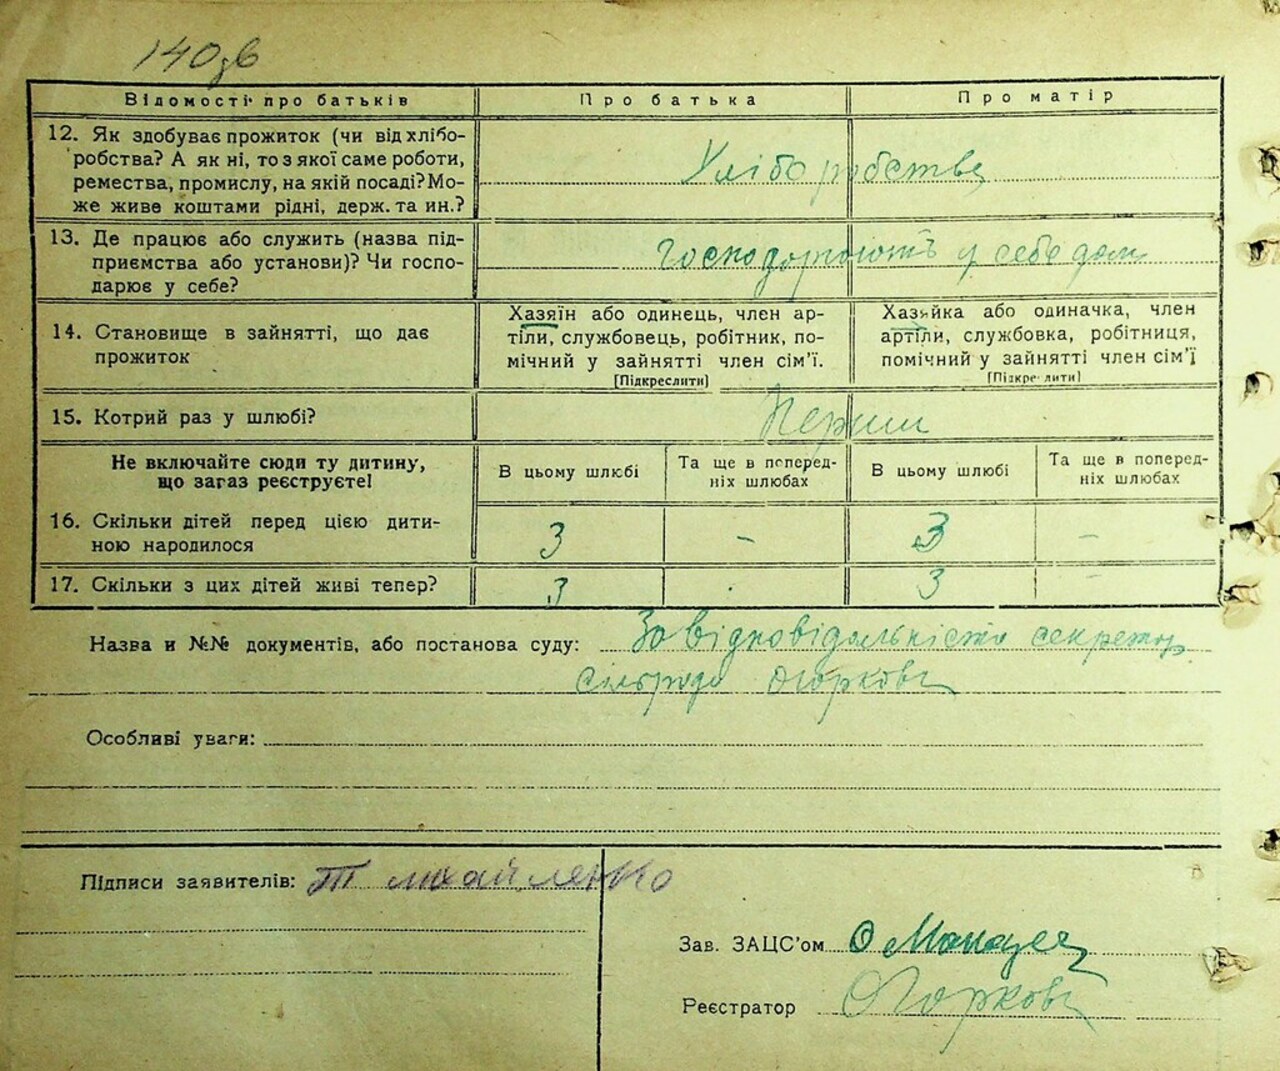 140зв
Відомості про батьків Про батька Про матір
12. Як здобуває прожиток (чи від хлібо-
робства? А як ні, то з якої саме роботи,
ремества, промислу, на якій посаді? Мо-
же живе коштами рідні, держ. та ин.?
Хліборобство
13. Де працює або служить (назва під-
приємства або установи)? Чи госпо-
дарює у себе?
Господарюють у себе дома
14. Становище в зайнятті, що дає
прожиток
Хазяїн або одинець, член ар-
тіли, службовець, робітник, по-
мічний у зайнятті член сім'ї.
[Підкреслити]
Хазяйка або одиначка, член
артіли, службовка, робітниця,
помічний у зайнятті член сім'ї
[Підкреслити]
15. Котрий раз у шлюбі?
Перший
Не включайте сюди ту дитину,
що загаз реєструєте!
В цьому шлюбі
Та ще в поперед-
ніх шлюбах
В цьому шлюбі
Та ще в поперед-
ніх шлюбах
16. Скільки дітей перед цією дити-
ною народилося
3 - 3 -
17. Скільки з цих дітей живі тепер?
3 - 3 -
Назва и №№ документів, або постанова суду: За відповідальністю секретар
сільради Огоркова
Особливі уваги:
Підписи заявителів: Т Михайленко
Зав. ЗАЦС'ом О
Реєстратор Огоркова